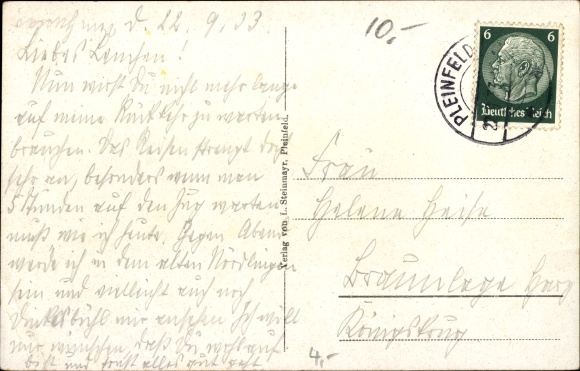 d. 22.9.33
Liebes Lenchen!
Nun wirst Du nicht mehr lange
auf meine Rückkehr zu warten
brauchen. Das Reisen strengt doch
sehr an, besonders wenn man
5 Stunden auf den Zug warten
muß wie ich heute. Gegen Abend
werde ich in dem alten Nördlingen
sein und vielleicht auch noch
Dinkelsbühl mir ansehen. Ich will
mir wünschen, daß Du wohlauf
bist und sonst alles gut geht.
10,-
PLEINFELD
6 6
Deutsches Reich
Verlag von L. Steinmayr, Pleinfeld.
Frau
Helene Heise
Braunlage Harz
Königskrug
4,-